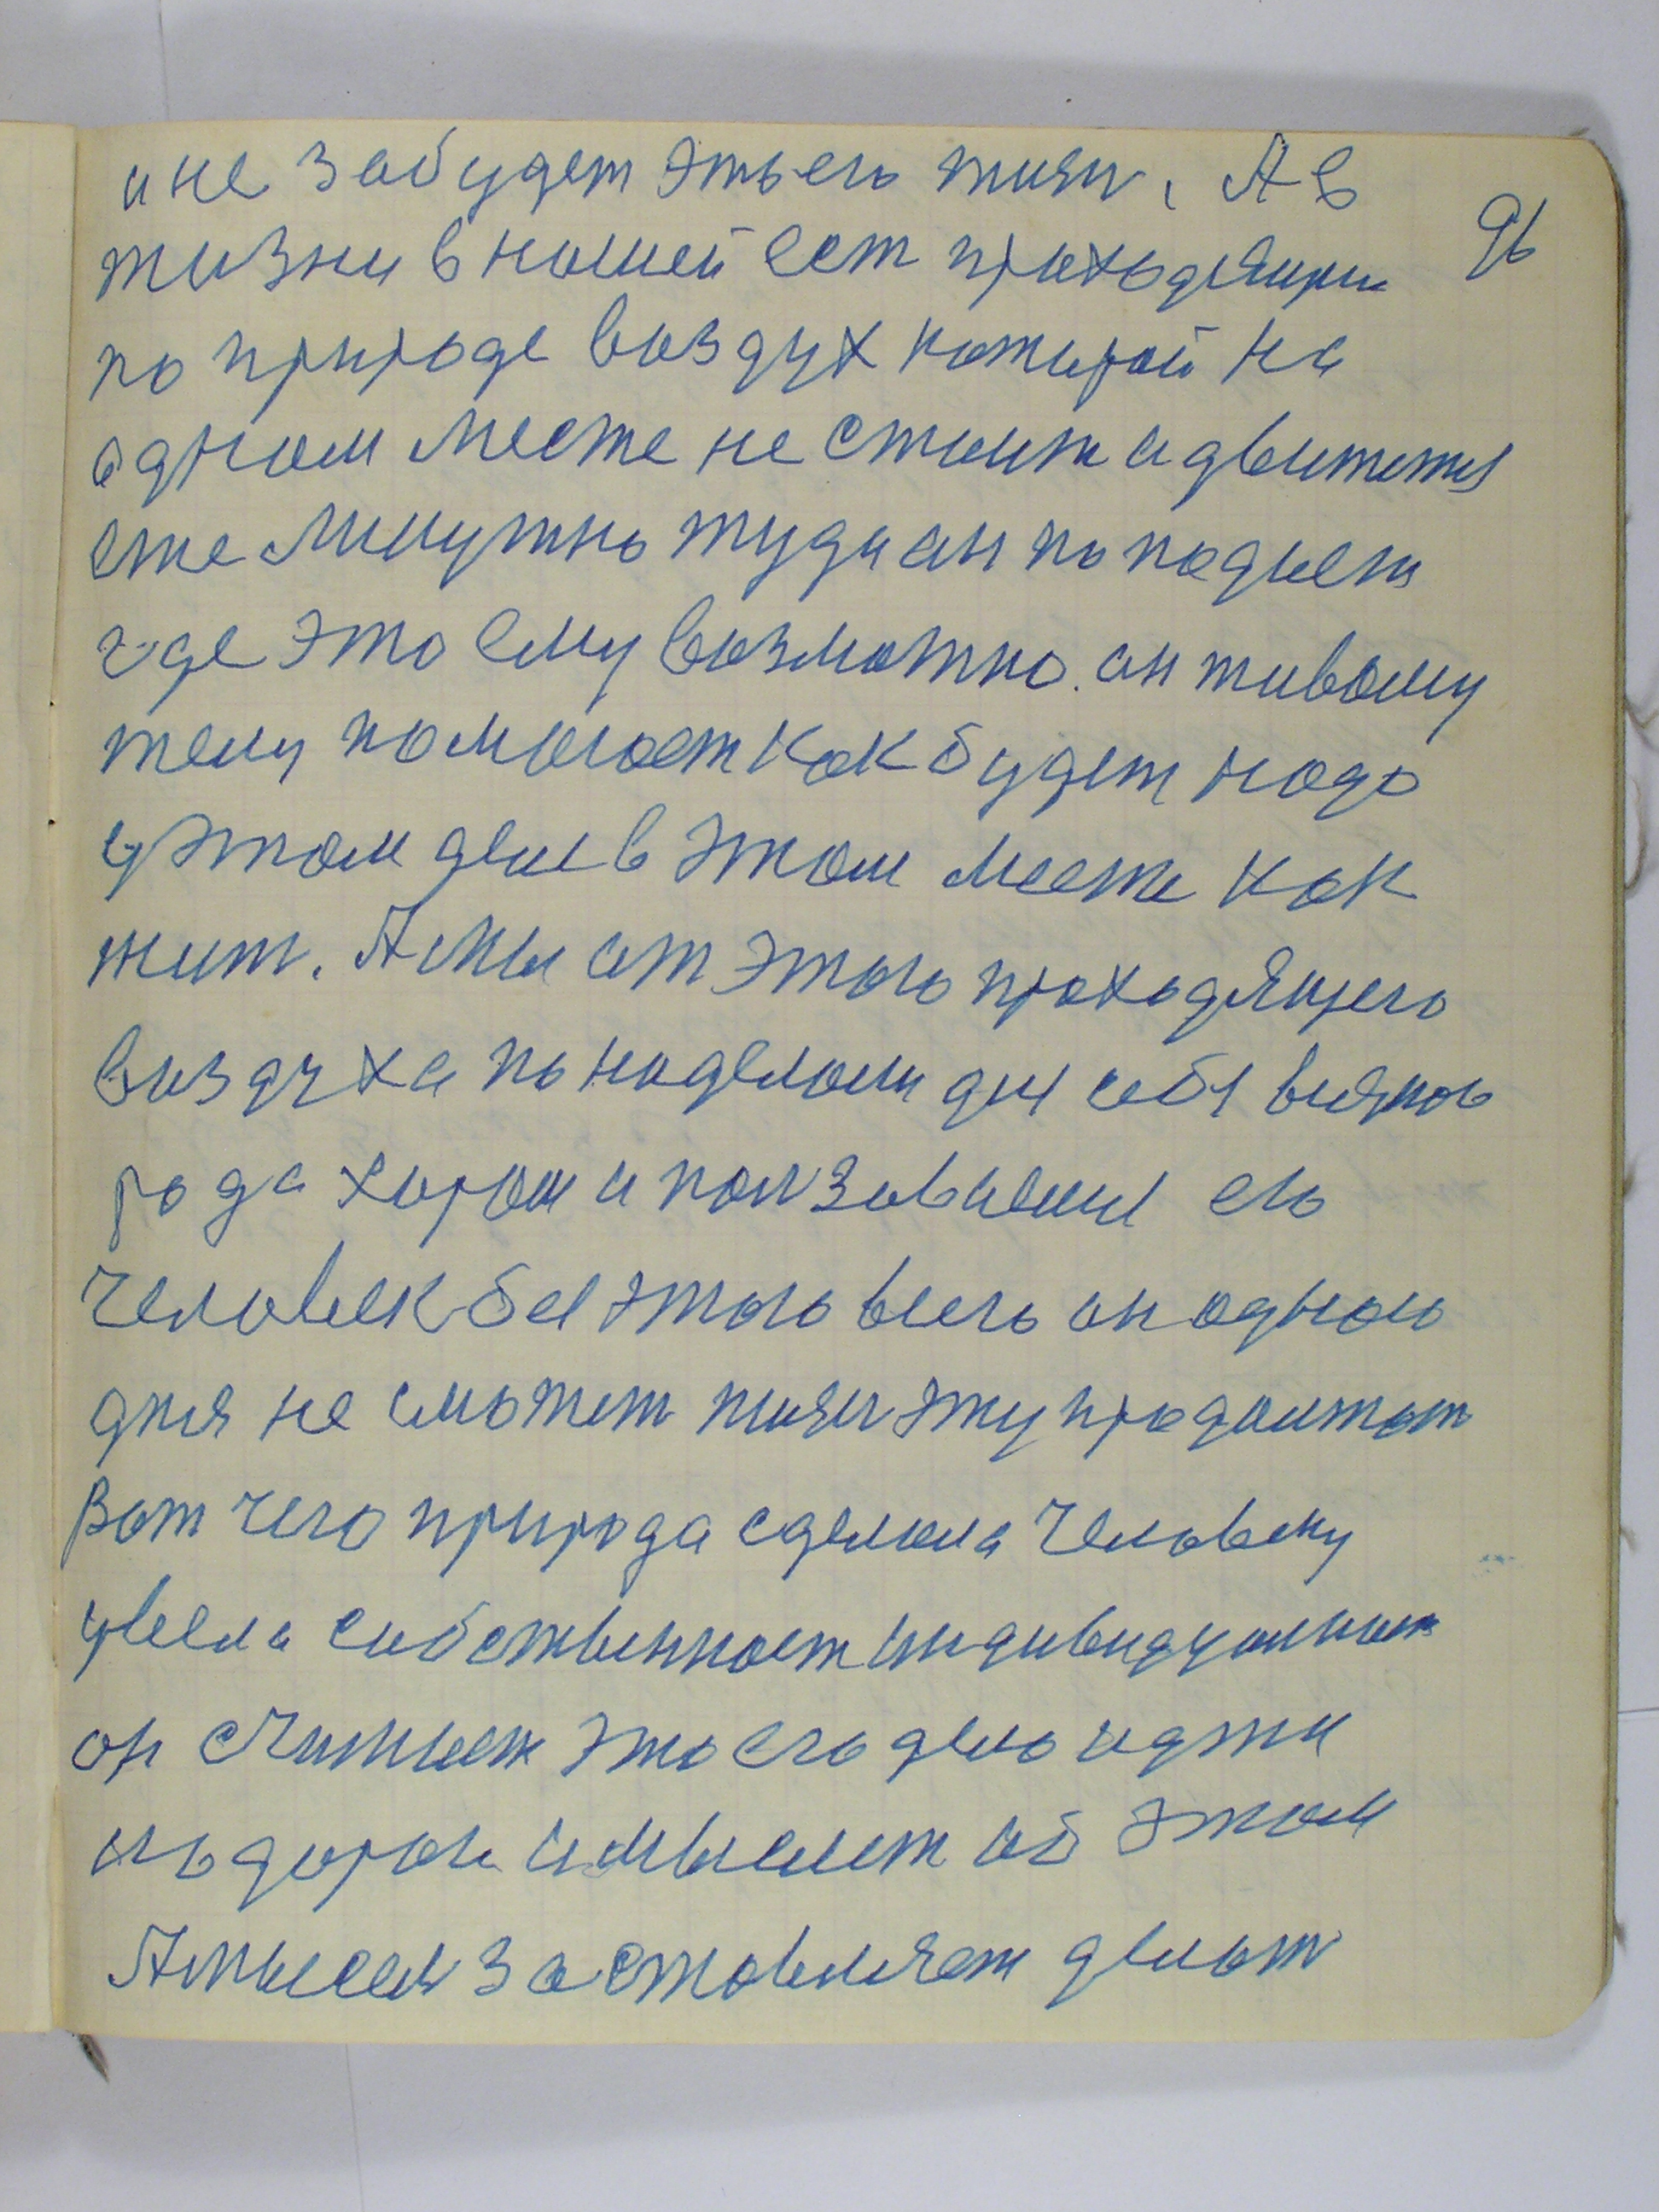 и не забудет это его жизн. А в
96
жизни в нашей ест проходящии
по природе воздух которой на
одном месте не стоит а движется
еже минутно туда он попадает
где это ему возможно. он живому
телу помогает как будет надо
у этом деле в этом месте как
жит. А мы от этого проходящего
воздуха понаделали для себя всяково
рода хором и ползоваемся его
Человек без этого всего он одного
дня не сможет жизн эту продолжат
Вот чего природа сделала Человеку
увела собственност индивидуалност
он считает это его дело идти
по дороги и мыслит об этом
А мысля заставляет делат